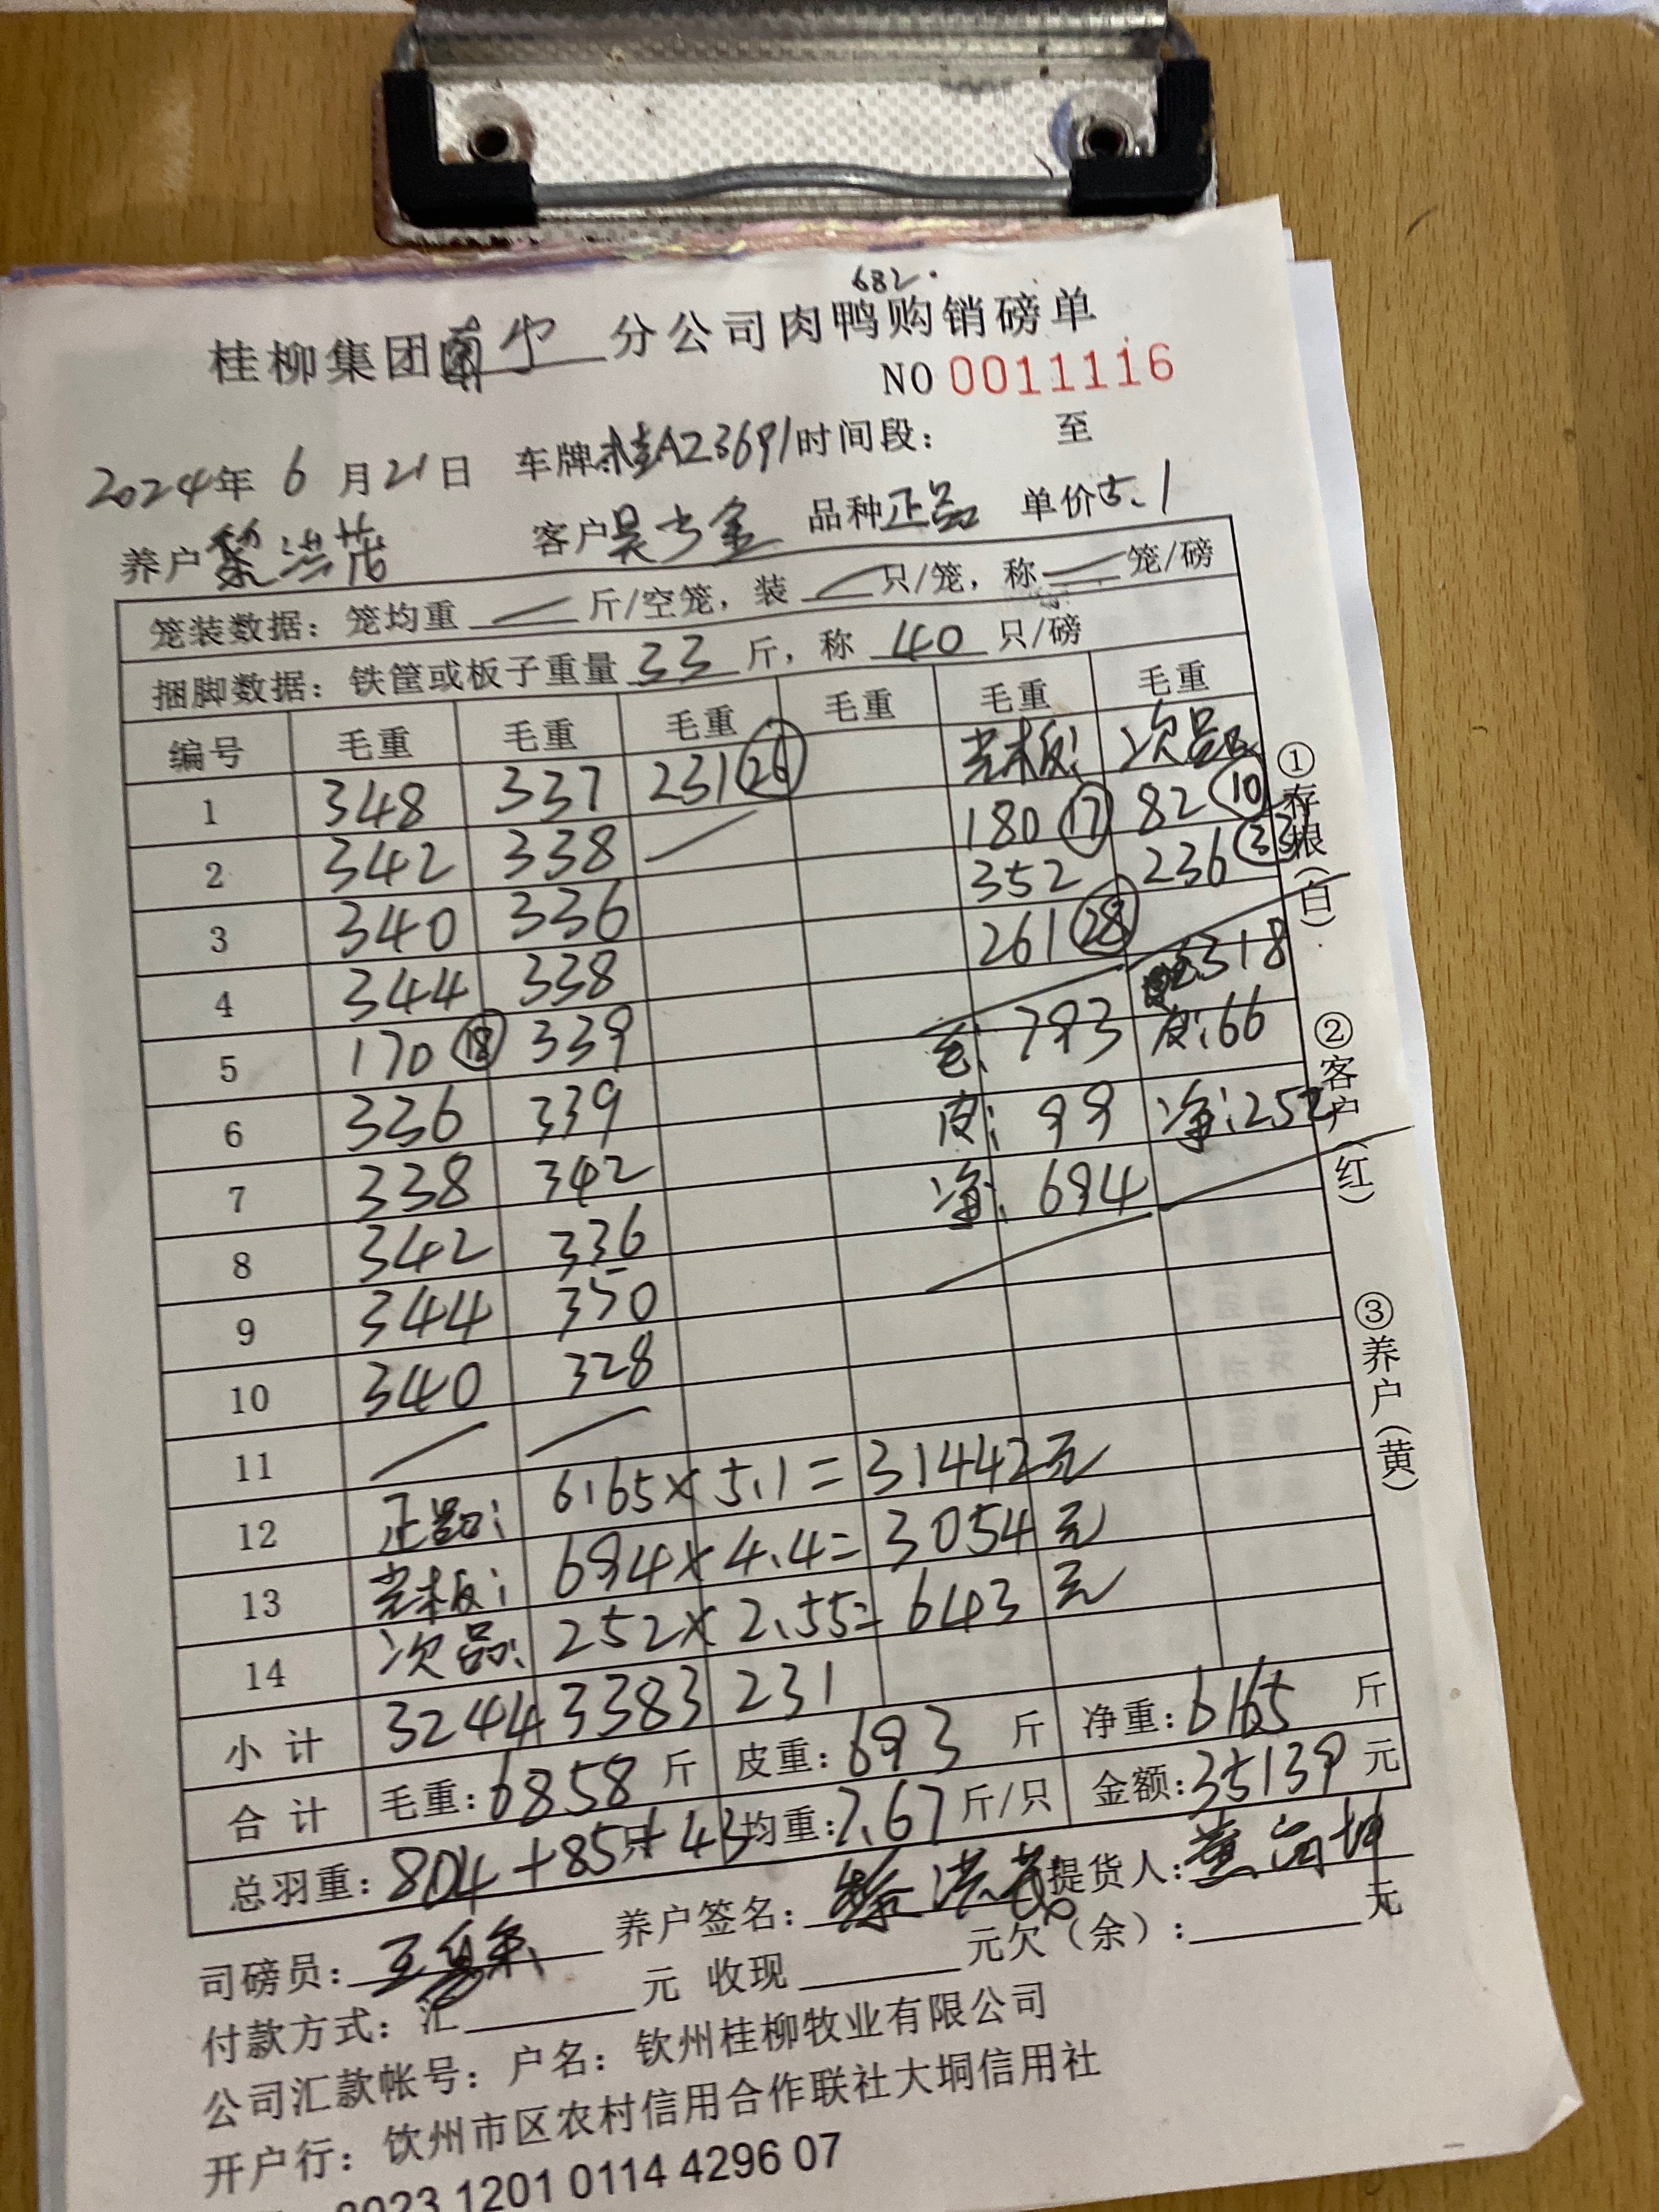 682.
桂柳集团南宁分公司肉鸭购销磅单
NO 0011116
2024年 6 月 21 日 车牌:桂A23691 时间段: 至
养户 黎洪茂 客户 吴士金 品种 正品 单价 5.1
笼装数据: 笼均重 — 斤/空笼, 装 — 只/笼, 称 — 笼/磅
捆脚数据: 铁筐或板子重量 33 斤, 称 40 只/磅
编号 毛重 毛重 毛重 毛重 毛重 毛重
1 348 337 231 26 光板: 次品:
2 342 338 180 17 82 10
3 340 336 352 236 33
4 344 338 261 28
5 170 18 339 毛: 793 318
6 336 339 皮: 99 皮: 66
7 338 342 净: 694 净: 252
8 342 336
9 344 350
10 340 328
11
12 正品: 6165 × 5.1 = 31442元
13 光板: 694 × 4.4 = 3054元
14 次品: 252 × 2.55 = 643元
小计 3244 3383 231
合计 毛重: 6858 斤 皮重: 693 斤 净重: 6165 斤
总羽重: 804+85+43 只 均重: 7.67 斤/只 金额: 35139 元
司磅员: 养户签名: 黎洪茂 提货人:
付款方式: 汇 元 收现 元欠(余): 元
公司汇款帐号: 户名: 钦州桂柳牧业有限公司
开户行: 钦州市区农村信用合作联社大垌信用社
8023 1201 0114 4296 07
①存根(白)
②客户(红)
③养户(黄)